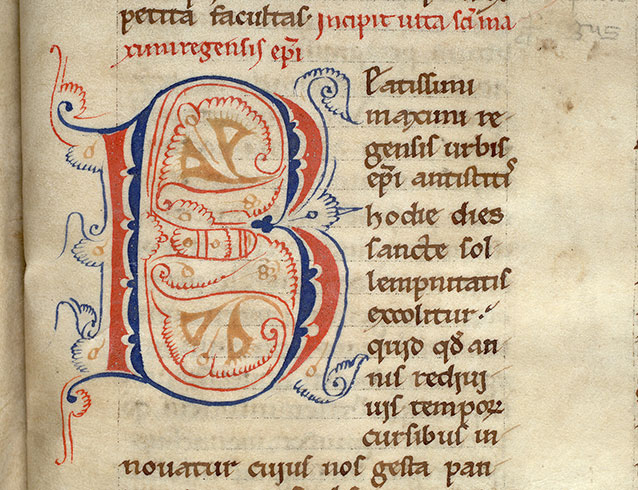 petita facultas. Incipit uita sc̄i ma
ximi regensis ep̄i
Beatissimi
maximi re
gensis urbis
ep̄i antistitꝭ
hodie dies
sancte sol
lempnitatis
excolitur.
quid qđ an
nis rediui
uis tempoꝝ
cursibus in
nouatur cuius nos gesta pan